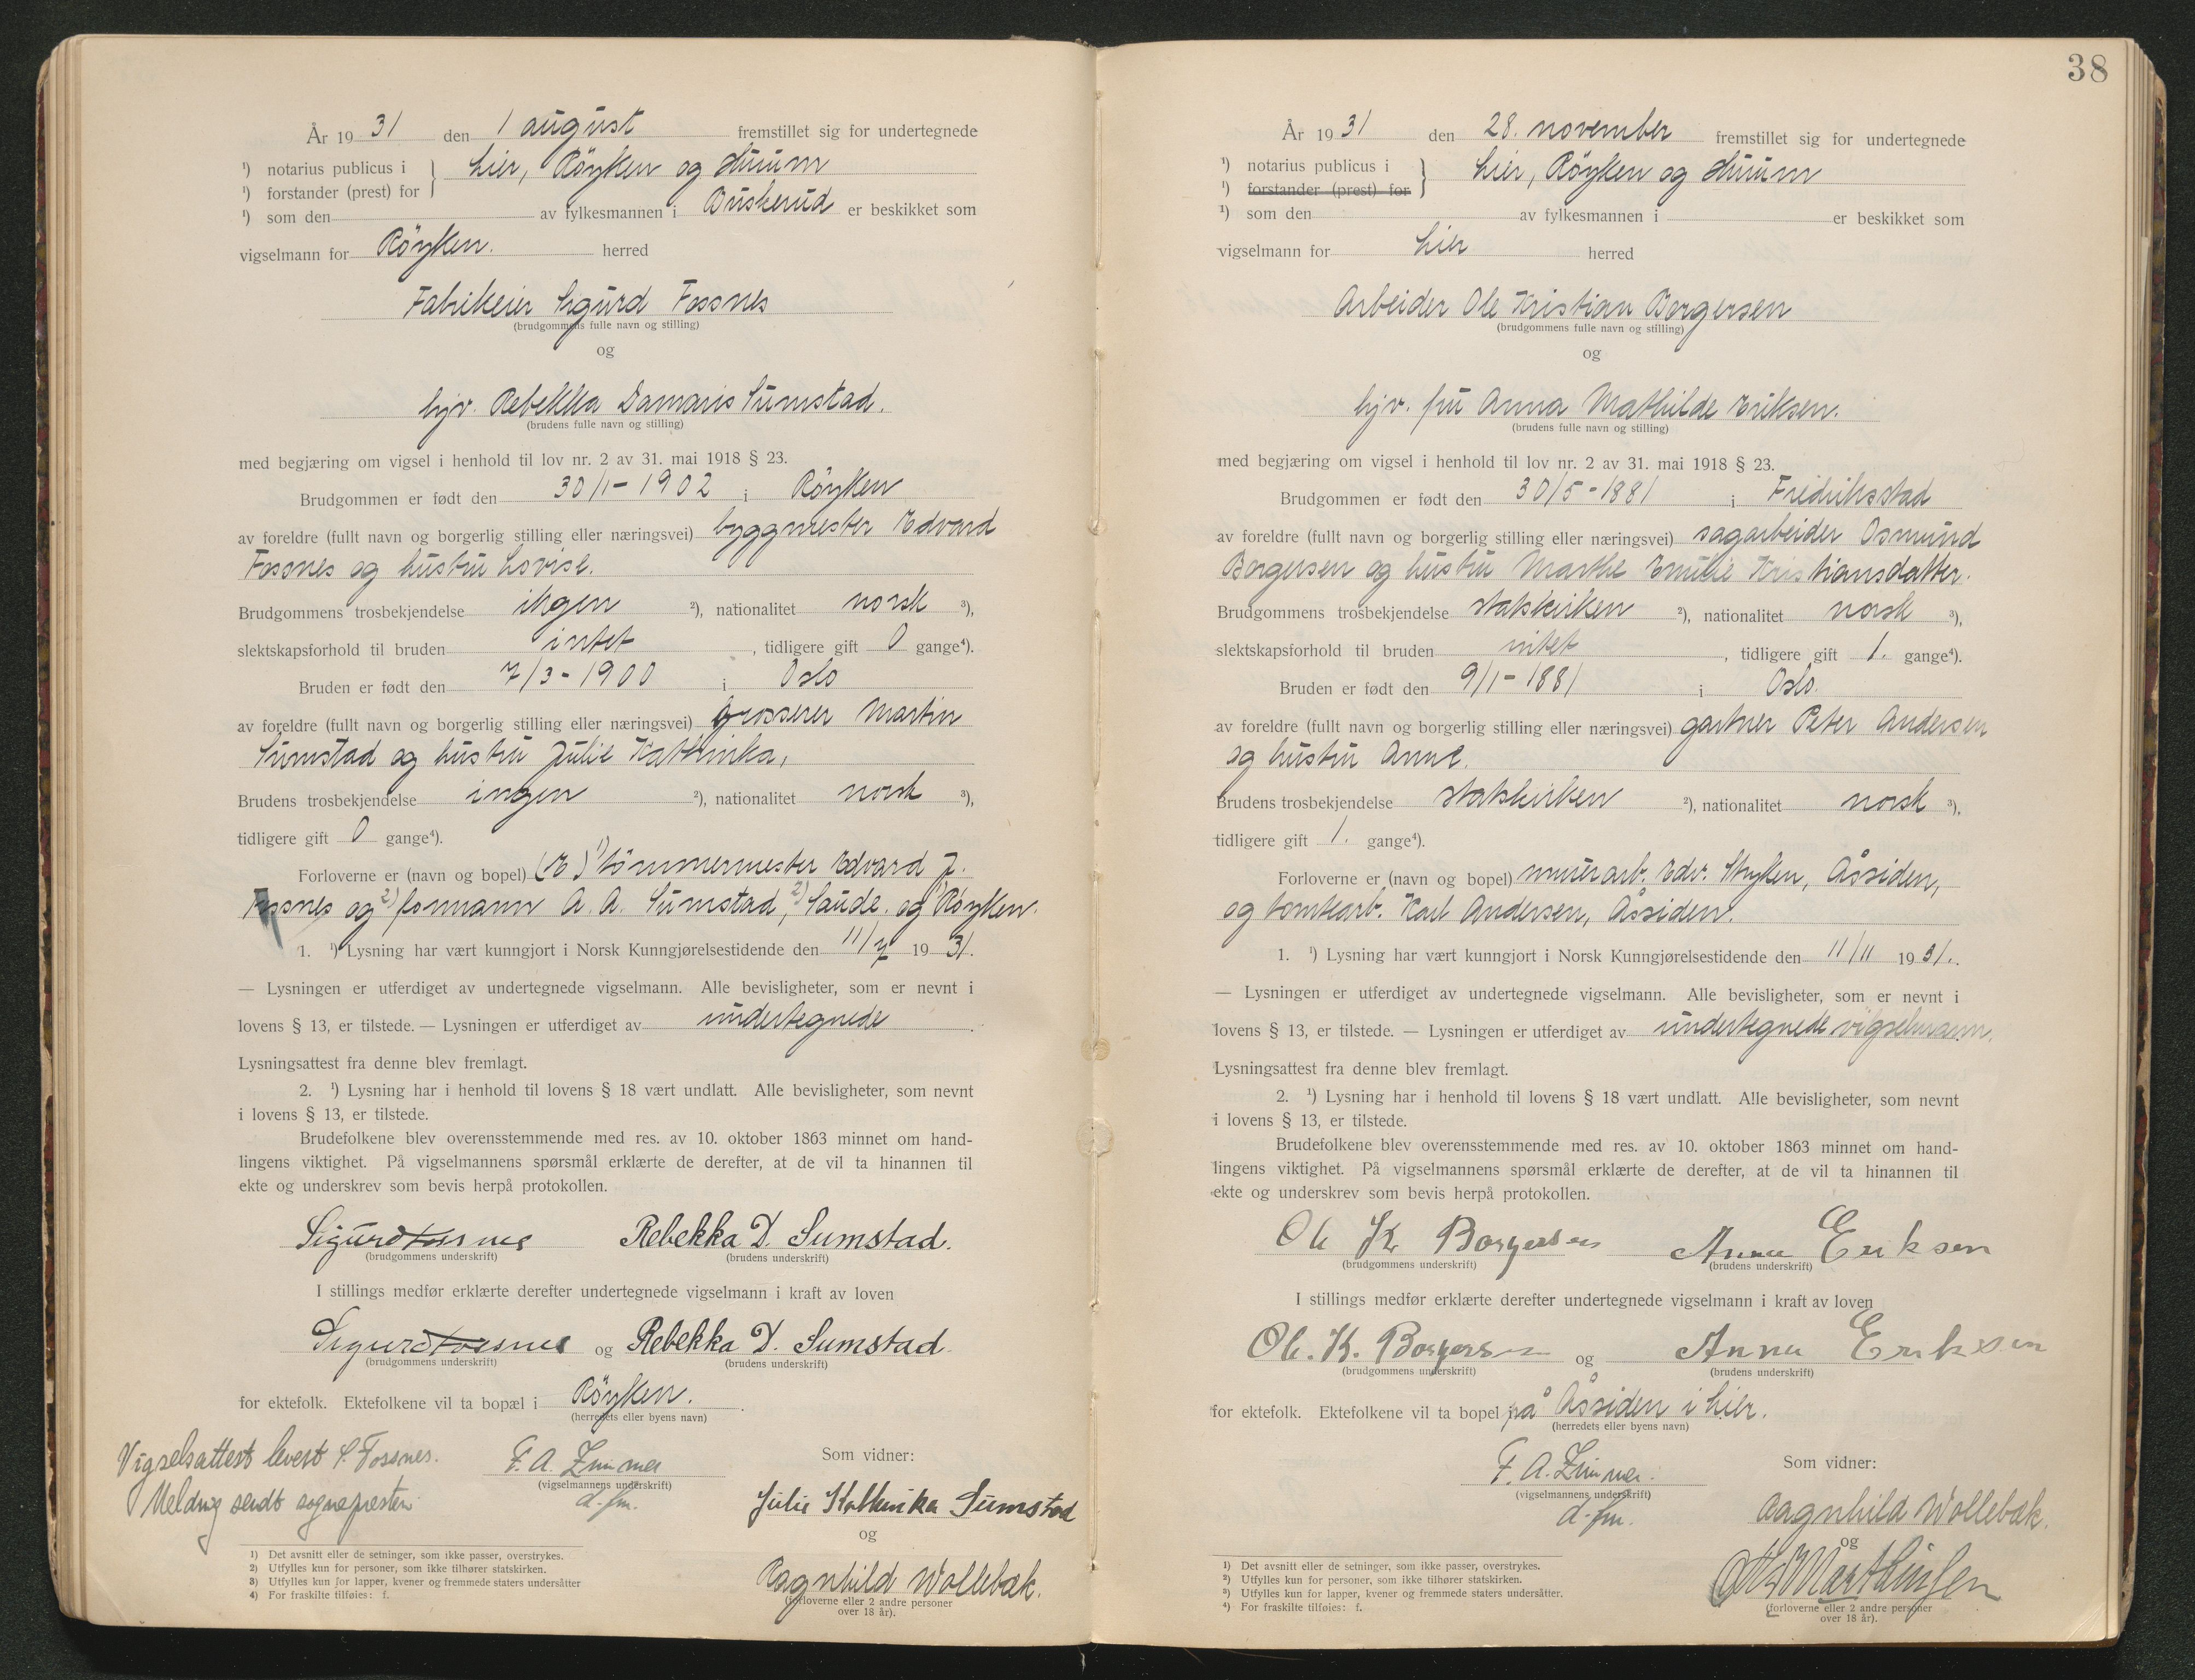 År 19 31 den 1 august fremstillet sig for undertegnede
¹) notarius publicus i } Lier, Röyken og Hurum
¹) forstander (prest) for
¹) som den av fylkesmannen i Buskerud er beskikket som
vigselmann for Röyken. herred
Fabrikeier Sigurd Fossnes
(brudgommens fulle navn og stilling)
og
hjv. Rebekka Damaris Sumstad.
(brudens fulle navn og stilling)
med begjæring om vigsel i henhold til lov nr. 2 av 31. mai 1918 § 23.
Brudgommen er født den 30/1-1902 i Röyken
av foreldre (fullt navn og borgerlig stilling eller næringsvei) byggmester Edvard
Fossnes og hustru Lovise.
Brudgommens trosbekjendelse ingen ²), nationalitet norsk ³),
slektskapsforhold til bruden intet, tidligere gift 0 gange⁴).
Bruden er født den 7/3-1900 i Oslo
av foreldre (fullt navn og borgerlig stilling eller næringsvei) grosserer Martin
Sumstad og hustru Julie Kathinka,
Brudens trosbekjendelse ingen ²), nationalitet norsk ³),
tidligere gift 0 gange⁴).
Forloverne er (navn og bopel) (E) ¹) tömmermester Edvard J.
Fossnes og ²) formann A. A. Sumstad, ²) Saude. og ¹) Röyken.
1. ¹) Lysning har vært kunngjort i Norsk Kunngjørelsestidende den 11/7 19 31.
— Lysningen er utferdiget av undertegnede vigselmann. Alle bevisligheter, som er nevnt i
lovens § 13, er tilstede. — Lysningen er utferdiget av undertegnede.
Lysningsattest fra denne blev fremlagt.
2. ¹) Lysning har i henhold til lovens § 18 vært undlatt. Alle bevisligheter, som nevnt
i lovens § 13, er tilstede.
Brudefolkene blev overensstemmende med res. av 10. oktober 1863 minnet om hand-
lingens viktighet. På vigselmannens spørsmål erklærte de derefter, at de vil ta hinannen til
ekte og underskrev som bevis herpå protokollen.
Sigurd Fossnes Rebekka D. Sumstad.
(brudgommens underskrift) (brudens underskrift)
I stillings medfør erklærte derefter undertegnede vigselmann i kraft av loven
Sigurd Fossnes og Rebekka D. Sumstad
(brudgommens underskrift) (brudens underskrift)
for ektefolk. Ektefolkene vil ta bopæl i Röyken.
(herredets eller byens navn)
Vigselsattest levert S. Fossnes.
Meldng sendt sogneprosten
F. A. Zimmer
(vigselmannens underskrift)
d. fm.
Som vidner:
Julie Kathinka Sumstad
og
Ragnhild Wollebæk.
(forloverne eller 2 andre personer
over 18 år).
1) Det avsnitt eller de setninger, som ikke passer, overstrykes.
2) Utfylles kun for personer, som ikke tilhører statskirken.
3) Utfylles kun for lapper, kvener og fremmede staters undersåtter
4) For fraskilte tilføies: f.
38
År 19 31 den 28. november fremstillet sig for undertegnede
¹) notarius publicus i } Lier, Röyken og Hurum
¹) forstander (prest) for
¹) som den av fylkesmannen i er beskikket som
vigselmann for Lier herred
Arbeider Ole Kristian Borgersen
(brudgommens fulle navn og stilling)
og
hjv. fru Anna Mathilde Eriksen.
(brudens fulle navn og stilling)
med begjæring om vigsel i henhold til lov nr. 2 av 31. mai 1918 § 23.
Brudgommen er født den 30/5-1881 i Fredriksstad
av foreldre (fullt navn og borgerlig stilling eller næringsvei) sagarbeider Osmund
Borgersen og hustru Marthe Emilie Kristiansdatter.
Brudgommens trosbekjendelse statskirken ²), nationalitet norsk ³),
slektskapsforhold til bruden intet, tidligere gift 1. gange⁴).
Bruden er født den 9/1-1881 i Oslo.
av foreldre (fullt navn og borgerlig stilling eller næringsvei) gartner Peter Andersen
og hustru Anne.
Brudens trosbekjendelse statskirken ²), nationalitet norsk ³),
tidligere gift 1. gange⁴).
Forloverne er (navn og bopel) murerarb. Edv. Stryken, Åssiden,
og tomtearb. Karl Andersen, Åssiden.
1. ¹) Lysning har vært kunngjort i Norsk Kunngjørelsestidende den 11/11 19 31.
— Lysningen er utferdiget av undertegnede vigselmann. Alle bevisligheter, som er nevnt i
lovens § 13, er tilstede. — Lysningen er utferdiget av undertegnede vigselmann.
Lysningsattest fra denne blev fremlagt.
2. ¹) Lysning har i henhold til lovens § 18 vært undlatt. Alle bevisligheter, som nevnt
i lovens § 13, er tilstede.
Brudefolkene blev overensstemmende med res. av 10. oktober 1863 minnet om hand-
lingens viktighet. På vigselmannens spørsmål erklærte de derefter, at de vil ta hinannen til
ekte og underskrev som bevis herpå protokollen.
Ole Kr Borgersen Anna Eriksen
(brudgommens underskrift) (brudens underskrift)
I stillings medfør erklærte derefter undertegnede vigselmann i kraft av loven
Ole. K. Borgersen og Anna Eriksen
(brudgommens underskrift) (brudens underskrift)
for ektefolk. Ektefolkene vil ta bopel på Åssiden i Lier.
(herredets eller byens navn)
F. A. Zimmer.
(vigselmannens underskrift)
d. fm.
Som vidner:
Ragnhild Wollebæk.
og
(forloverne eller 2 andre personer
over 18 år).
1) Det avsnitt eller de setninger, som ikke passer, overstrykes.
2) Utfylles kun for personer, som ikke tilhører statskirken.
3) Utfylles kun for lapper, kvener og fremmede staters undersåtter.
4) For fraskilte tilføies: f.